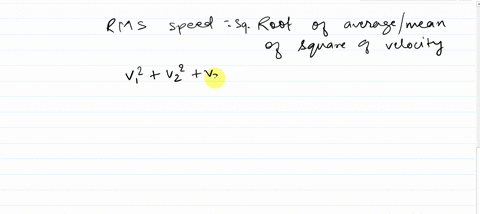 RMS speed = Sq. Root of average/mean
of square of velocity
v₁² + v₂² + v